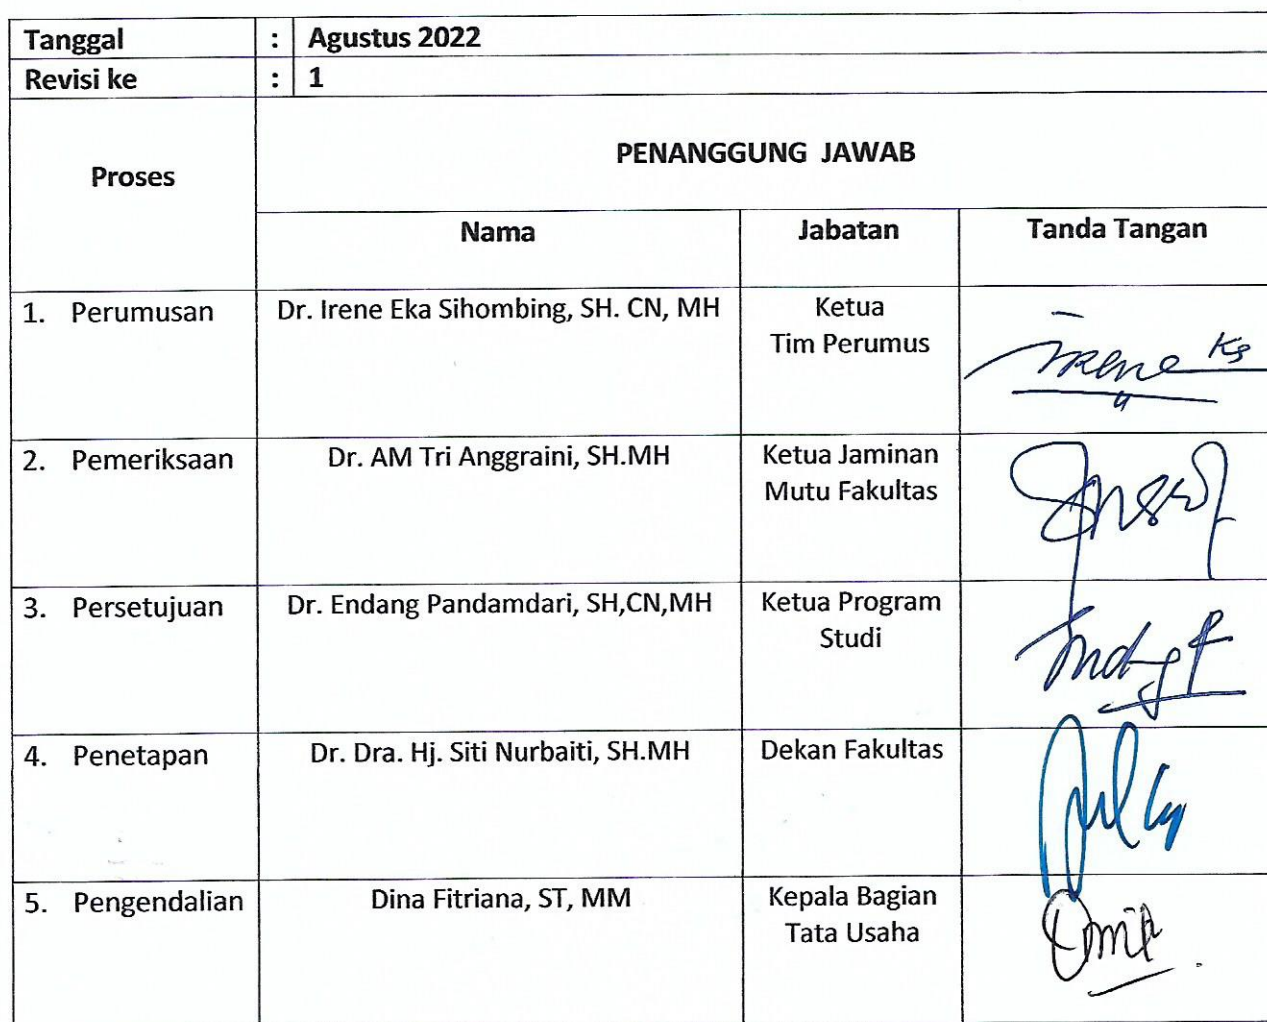 Tanggal : Agustus 2022
Revisi ke : 1
Proses
PENANGGUNG JAWAB
Nama Jabatan Tanda Tangan
1. Perumusan Dr. Irene Eka Sihombing, SH. CN, MH Ketua
Tim Perumus
Irene Ks
2. Pemeriksaan Dr. AM Tri Anggraini, SH.MH Ketua Jaminan
Mutu Fakultas
3. Persetujuan Dr. Endang Pandamdari, SH,CN,MH Ketua Program
Studi
4. Penetapan Dr. Dra. Hj. Siti Nurbaiti, SH.MH Dekan Fakultas
5. Pengendalian Dina Fitriana, ST, MM Kepala Bagian
Tata Usaha